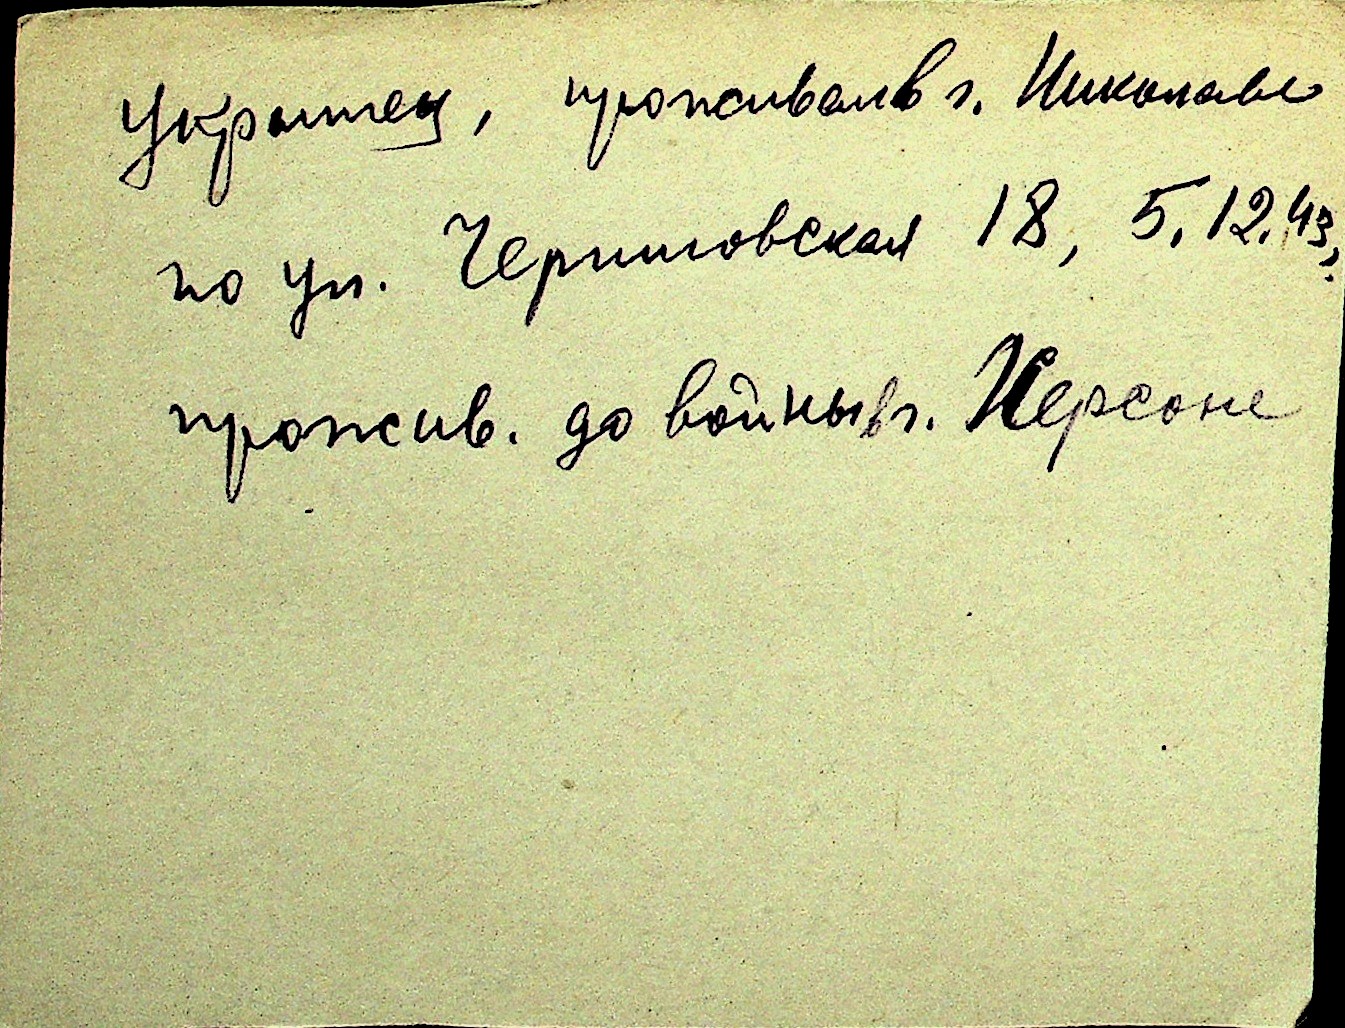 Украинец, проживал в г. Николаеве
по ул. Черниговская 18, 5.12.43,
прожив. до войны в г. Херсоне